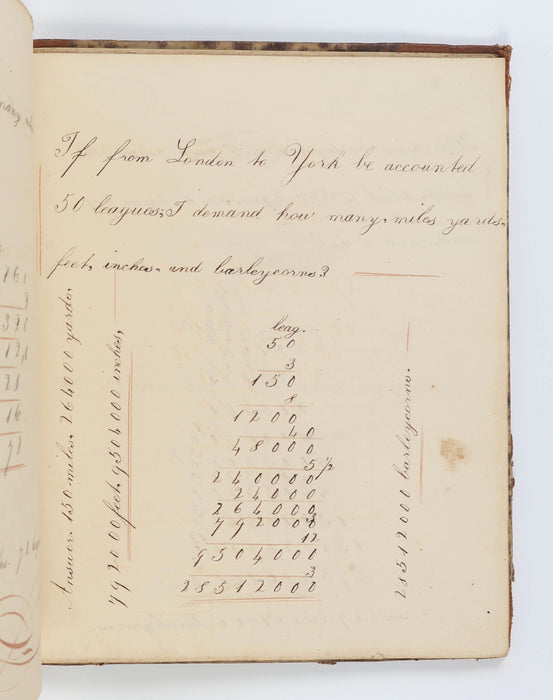 If from London to York be accounted
50 leagues, I demand how many, miles yards,
feet, inches, and barleycorns?
leag.
50
3
150
8
1200
40
48000
5½
240000
24000
264000
3
792000
12
9504000
3
28512000
Answer. 150 miles, 264000 yards,
792000 feet, 9504000 inches,
28512000 barleycorns.